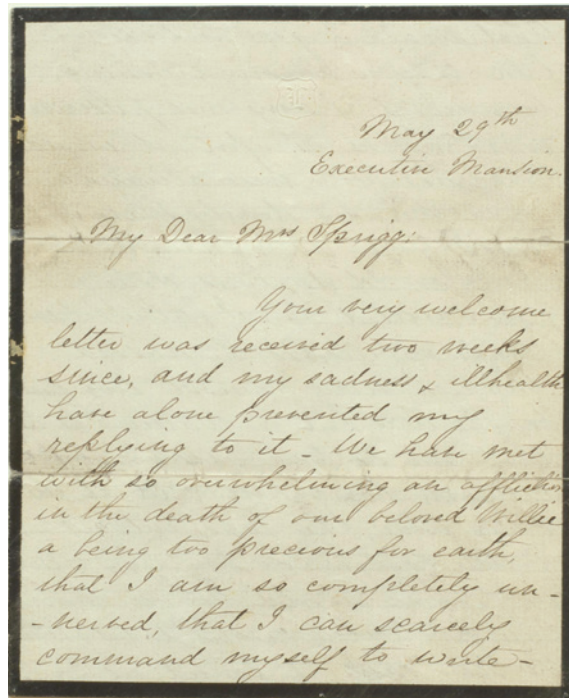 May 29th
Executive Mansion.
My Dear Mrs Sprigg:
Your very welcome
letter was received two weeks
since, and my sadness & illhealth
have alone prevented my
replying to it - We have met
with so overwhelming an affliction
in the death of our beloved Willie
a being too precious for earth,
that I am so completely un-
-nerved, that I can scarcely
command myself to write-